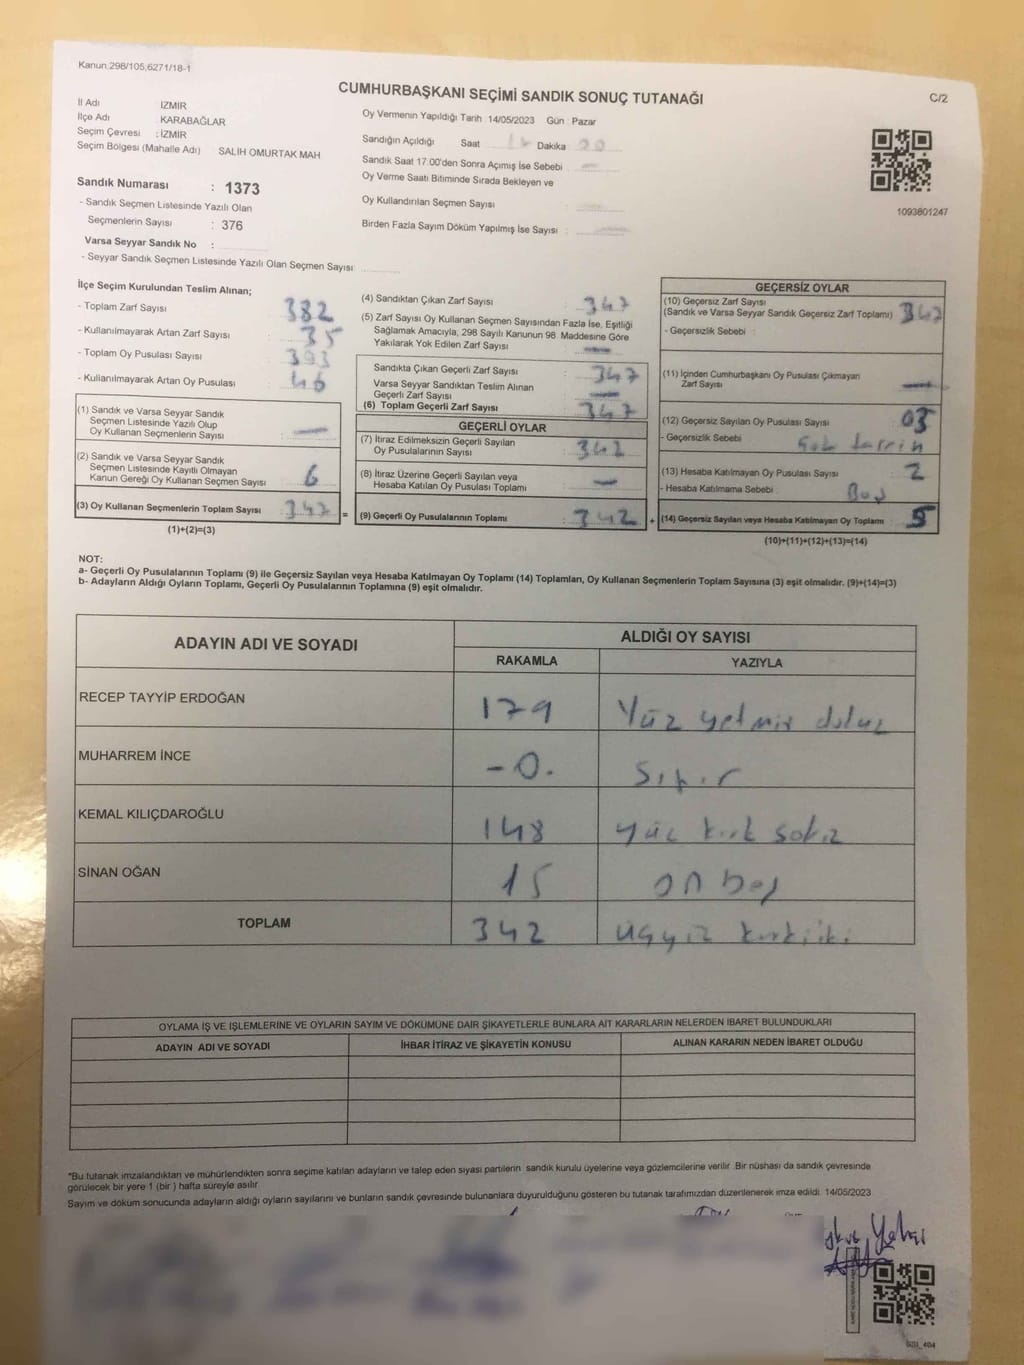 Kanun.298/105,6271/18-1
CUMHURBAŞKANI SEÇİMİ SANDIK SONUÇ TUTANAĞI
C/2
İl Adı : İZMİR
İlçe Adı : KARABAĞLAR
Seçim Çevresi : İZMİR
Seçim Bölgesi (Mahalle Adı) SALIH OMURTAK MAH
Sandık Numarası : 1373
- Sandık Seçmen Listesinde Yazılı Olan
Seçmenlerin Sayısı : 376
Varsa Seyyar Sandık No :
- Seyyar Sandık Seçmen Listesinde Yazılı Olan Seçmen Sayısı
Oy Vermenin Yapıldığı Tarih :14/05/2023 Gün : Pazar
Sandığın Açıldığı Saat Dakika
Sandık Saat 17.00'den Sonra Açımış İse Sebebi
Oy Verme Saati Bitiminde Sırada Bekleyen ve
Oy Kullandırılan Seçmen Sayısı
Birden Fazla Sayım Döküm Yapılmış İse Sayısı
1093601247
İlçe Seçim Kurulundan Teslim Alınan;
- Toplam Zarf Sayısı : 382
- Kullanılmayarak Artan Zarf Sayısı : 35
- Toplam Oy Pusulası Sayısı : 393
- Kullanılmayarak Artan Oy Pusulası : 46
(1) Sandık ve Varsa Seyyar Sandık
Seçmen Listesinde Yazılı Olup
Oy Kullanan Seçmenlerin Sayısı : —
(2) Sandık ve Varsa Seyyar Sandık
Seçmen Listesinde Kayıtlı Olmayan
Kanun Gereği Oy Kullanan Seçmen Sayısı : 6
(3) Oy Kullanan Seçmenlerin Toplam Sayısı : 347 =
(1)+(2)=(3)
(4) Sandıktan Çıkan Zarf Sayısı : 347
(5) Zarf Sayısı Oy Kullanan Seçmen Sayısından Fazla İse, Eşitliği
Sağlamak Amacıyla, 298 Sayılı Kanunun 98. Maddesine Göre
Yakılarak Yok Edilen Zarf Sayısı : —
Sandıkta Çıkan Geçerli Zarf Sayısı : 347
Varsa Seyyar Sandıktan Teslim Alınan
Geçerli Zarf Sayısı : —
(6) Toplam Geçerli Zarf Sayısı : 347
GEÇERLİ OYLAR
(7) İtiraz Edilmeksizin Geçerli Sayılan
Oy Pusulalarının Sayısı : 342
(8) İtiraz Üzerine Geçerli Sayılan veya
Hesaba Katılan Oy Pusulası Toplamı : —
(9) Geçerli Oy Pusulalarının Toplamı : 342 +
GEÇERSİZ OYLAR
(10) Geçersiz Zarf Sayısı
(Sandık ve Varsa Seyyar Sandık Geçersiz Zarf Toplamı) : 347
- Geçersizlik Sebebi :
(11) İçinden Cumhurbaşkanı Oy Pusulası Çıkmayan
Zarf Sayısı : —
(12) Geçersiz Sayılan Oy Pusulası Sayısı : 03
- Geçersizlik Sebebi :
(13) Hesaba Katılmayan Oy Pusulası Sayısı : 2
- Hesaba Katılmama Sebebi : Boş
(14) Geçersiz Sayılan veya Hesaba Katılmayan Oy Toplamı : 5
(10)+(11)+(12)+(13)=(14)
NOT:
a- Geçerli Oy Pusulalarının Toplamı (9) ile Geçersiz Sayılan veya Hesaba Katılmayan Oy Toplamı (14) Toplamları, Oy Kullanan Seçmenlerin Toplam Sayısına (3) eşit olmalıdır. (9)+(14)=(3)
b- Adayların Aldığı Oyların Toplamı, Geçerli Oy Pusulalarının Toplamına (9) eşit olmalıdır.
ADAYIN ADI VE SOYADI ALDIĞI OY SAYISI
RAKAMLA YAZIYLA
RECEP TAYYİP ERDOĞAN 179 Yüz yetmiş dokuz
MUHARREM İNCE -0. Sıfır
KEMAL KILIÇDAROĞLU 148 yüz kırk sekiz
SİNAN OĞAN 15 on beş
TOPLAM 342 üçyüz kırkiki
OYLAMA İŞ VE İŞLEMLERİNE VE OYLARIN SAYIM VE DÖKÜMÜNE DAİR ŞİKAYETLERLE BUNLARA AİT KARARLARIN NELERDEN İBARET BULUNDUKLARI
ADAYIN ADI VE SOYADI İHBAR İTİRAZ VE ŞİKAYETİN KONUSU ALINAN KARARIN NEDEN İBARET OLDUĞU
*Bu tutanak imzalandıktan ve mühürlendikten sonra seçime katılan adayların ve talep eden siyasi partilerin sandık kurulu üyelerine veya gözlemcilerine verilir. Bir nüshası da sandık çevresinde
görülecek bir yere 1 (bir ) hafta süreyle asılır.
Sayım ve döküm sonucunda adayların aldığı oyların sayılarını ve bunların sandık çevresinde bulunanlara duyurulduğunu gösteren bu tutanak tarafımızdan düzenlenerek imza edildi. 14/05/2023